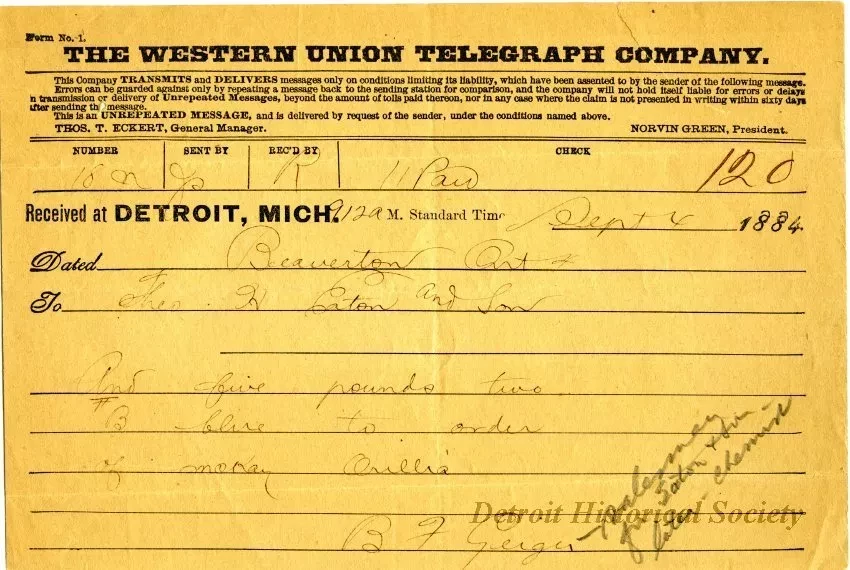 Form No. 1.
THE WESTERN UNION TELEGRAPH COMPANY.
This Company TRANSMITS and DELIVERS messages only on conditions limiting its liability, which have been assented to by the sender of the following message.
Errors can be guarded against only by repeating a message back to the sending station for comparison, and the company will not hold itself liable for errors or delays
n transmission or delivery of Unrepeated Messages, beyond the amount of tolls paid thereon, nor in any case where the claim is not presented in writing within sixty days
after sending th message.
This is an UNREPEATED MESSAGE, and is delivered by request of the sender, under the conditions named above.
THOS. T. ECKERT, General Manager. NORVIN GREEN, President.
NUMBER SENT BY REC'D BY CHECK
R 11 Paid 120
Received at DETROIT, MICH. 912a M. Standard Time Sept 4 1884
Dated Beaverton Ont 4
To Theo. H Eaton and Son
And five pounds two
B blue to order
of McKay Orillia
B F Geiger
Salesman
for Eaton & Son
Chemist
Detroit Historical Society